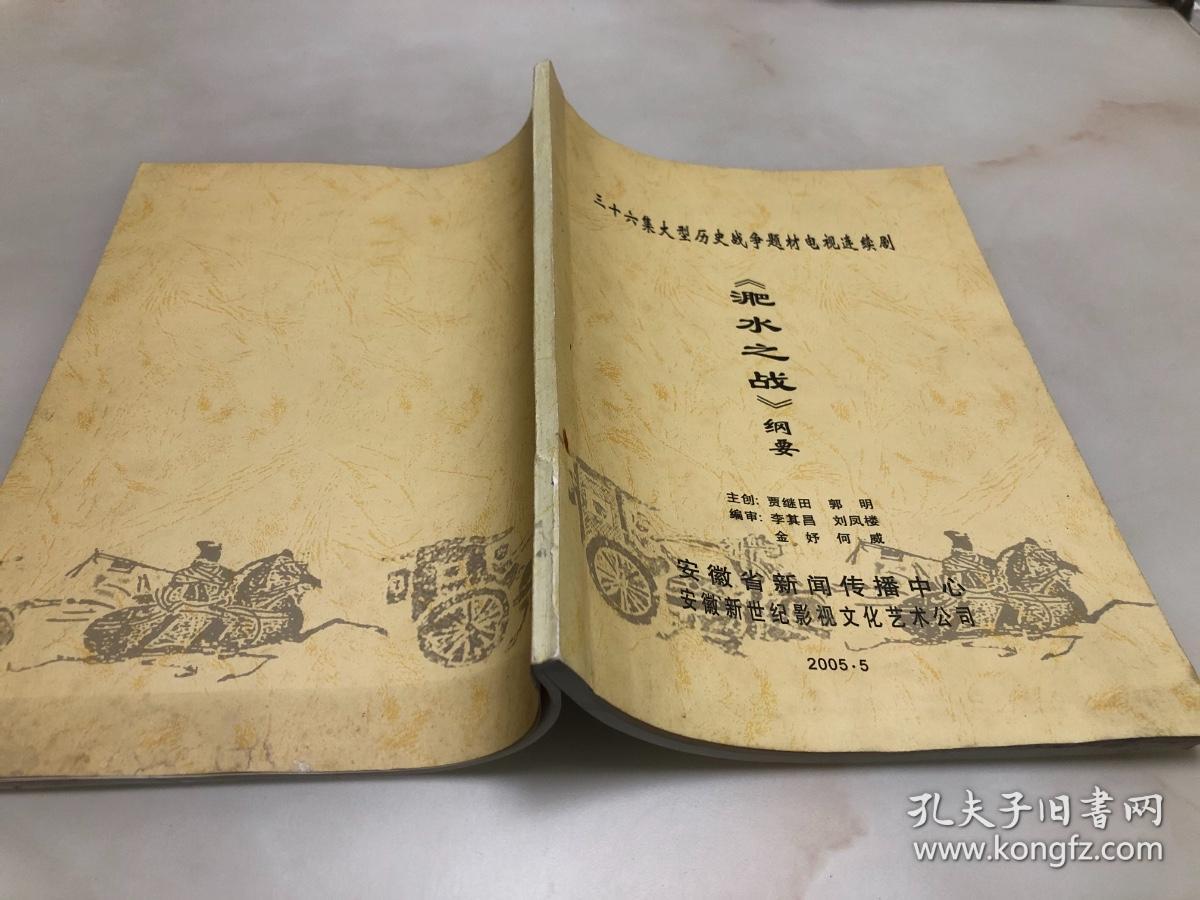 三十六集大型历史战争题材电视连续剧
《淝水之战》纲要
主创：贾继田 郭明
编审：李其昌 刘凤楼
金妤 何威
安徽省新闻传播中心
安徽新世纪影视文化艺术公司
2005·5
孔夫子旧书网
www.kongfz.com